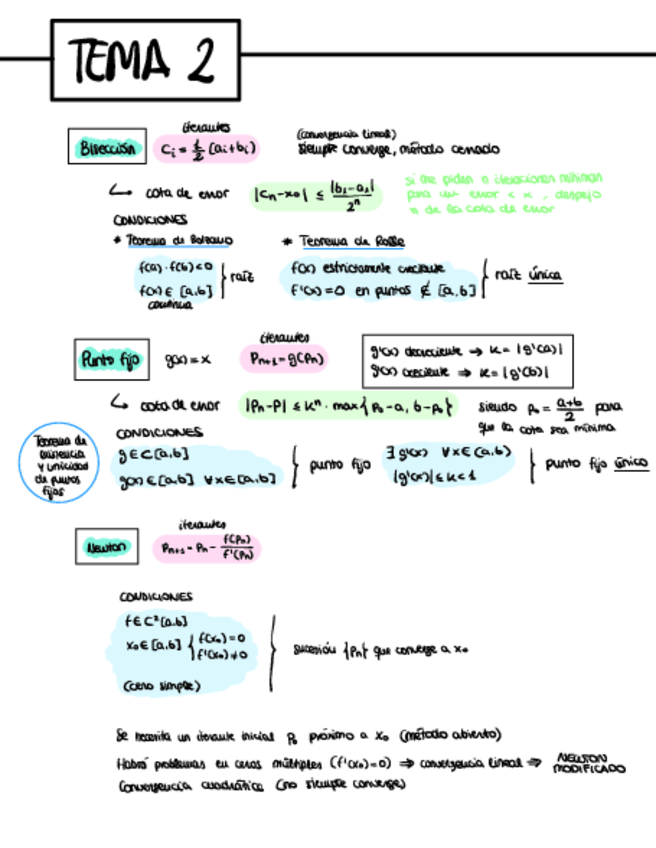 TEMA 2
iterantes
Bisección Ci = 1/2 [ai+bi) (convergencia lineal)
siempre converge, método cerrado
↳ cota de error |Cn-x0| ≤ |b1-a1|/2ⁿ
si me piden n iteraciones mínimas
para un error < x, despejo
n de la cota de error
CONDICIONES
* Teorema de Bolzano * Teorema de Rolle
f(a)·f(b)<0 } raíz f(x) estrictamente creciente } raíz única
f(x) ∈ [a,b] f'(x)=0 en puntos ∉ [a,b]
continua
iterantes
Punto fijo g(x)=x Pn+1=g(Pn)
g'(x) decreciente → K= |g'(a)|
g'(x) creciente ⇒ K= |g'(b)|
↳ cota de error |Pn-P| ≤ Kⁿ · max{P0-a, b-P0} siendo P0 = a+b/2 para
que la cota sea mínima
Teorema de
existencia
y unicidad
de puntos
fijos
CONDICIONES
g∈C[a,b] } punto fijo ∃ g'(x) ∀x∈(a,b) } punto fijo único
g(x)∈[a,b] ∀x∈[a,b] |g'(x)|≤K<1
iterantes
Newton Pn+1 = Pn - f(Pn)/f'(Pn)
CONDICIONES
f∈C²[a,b]
x0∈[a,b] { f(x0)=0
f'(x0)≠0
(cero simple)
} sucesión {Pn} que converge a x0
Se necesita un iterante inicial P0 próximo a x0 (método abierto)
Habrá problemas en ceros múltiples (f'(x0)=0) ⇒ convergencia lineal ⇒ NEWTON
MODIFICADO
Convergencia cuadrática (no siempre converge)